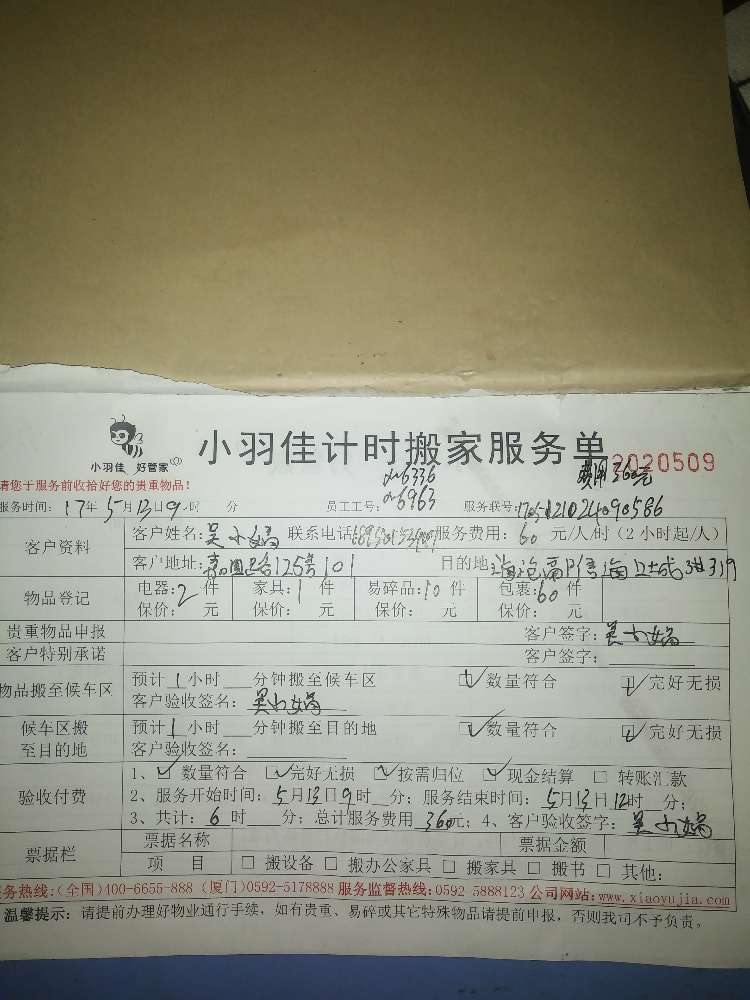 小羽佳 好管家
小羽佳计时搬家服务单 2020509
费用360元
请您于服务前收拾好您的贵重物品!
6336
服务时间: 17年5月13日9时 分 员工工号: 6963 服务联号:
客户资料 客户姓名: 吴小娟 联系电话 服务费用: 60 元/人/时 (2小时起/人)
客户地址: 125号101 目的地:
物品登记 电器: 2 件 家具: 1 件 易碎品: 10 件 包裹: 60 件
保价: 元 保价: 元 保价: 元 保价: 元
贵重物品申报 客户签字: 吴小娟
客户特别承诺 客户签字:
物品搬至候车区 预计 1 小时 分钟搬至候车区 ☑ 数量符合 ☑ 完好无损
客户验收签名: 吴小娟
候车区搬至目的地 预计 1 小时 分钟搬至目的地 ☑ 数量符合 ☑ 完好无损
客户验收签名:
验收付费 1、☑ 数量符合 ☑ 完好无损 ☑ 按需归位 ☑ 现金结算 □ 转账汇款
2、服务开始时间: 5月13日9时 分; 服务结束时间: 5月13日12时 分;
3、共计: 6 时 分; 总计服务费用 360元; 4、客户验收签字: 吴小娟
票据栏 票据名称 票据金额
项 目 □ 搬设备 □ 搬办公家具 □ 搬家具 □ 搬书 □ 其他:
务热线:(全国)400-6655-888 (厦门)0592-5178888 服务监督热线:0592 5888123 公司网站:www.xiaoyujia.com
温馨提示: 请提前办理好物业通行手续, 如有贵重、易碎或其它特殊物品请提前申报, 否则我司不予负责。